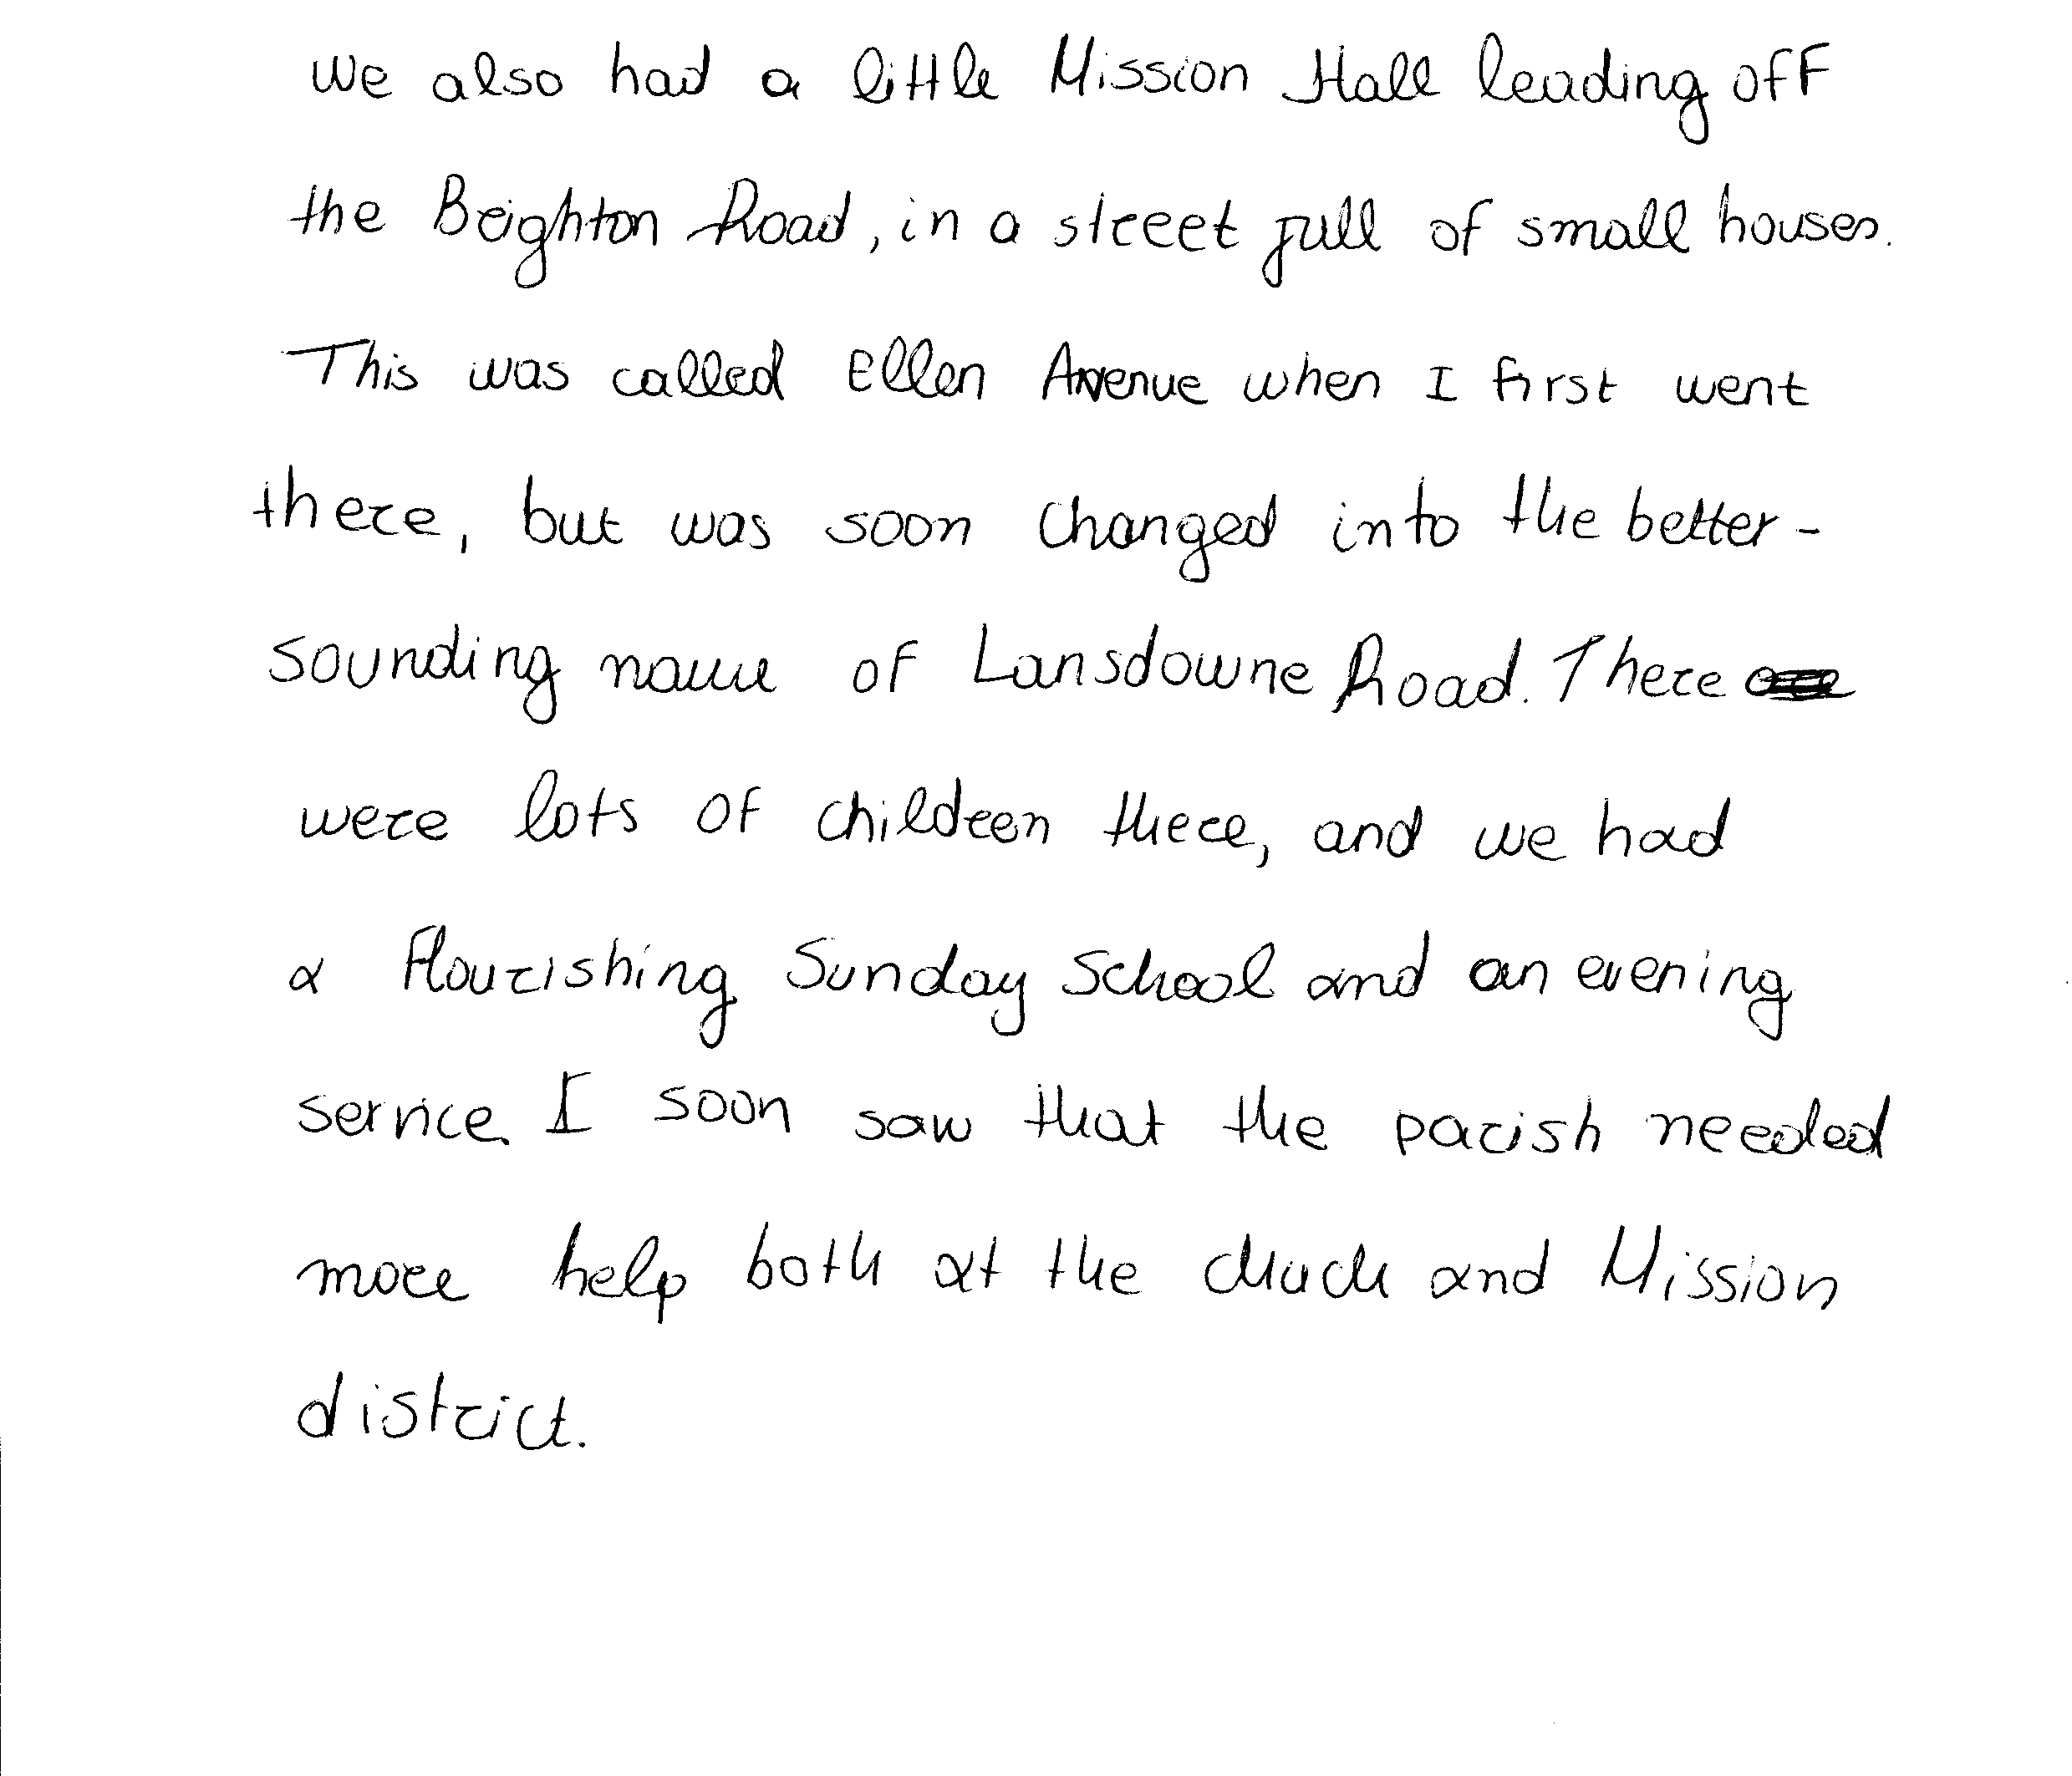 We also had a little Mission Hall leading off
the Brighton Road, in a street full of small houses.
This was called Ellen Avenue when I first went
there, but was soon changed into the better-
sounding name of Lansdowne Road. There
were lots of children there, and we had
a flourishing Sunday School and an evening
service. I soon saw that the parish needed
more help both at the church and Mission
district.